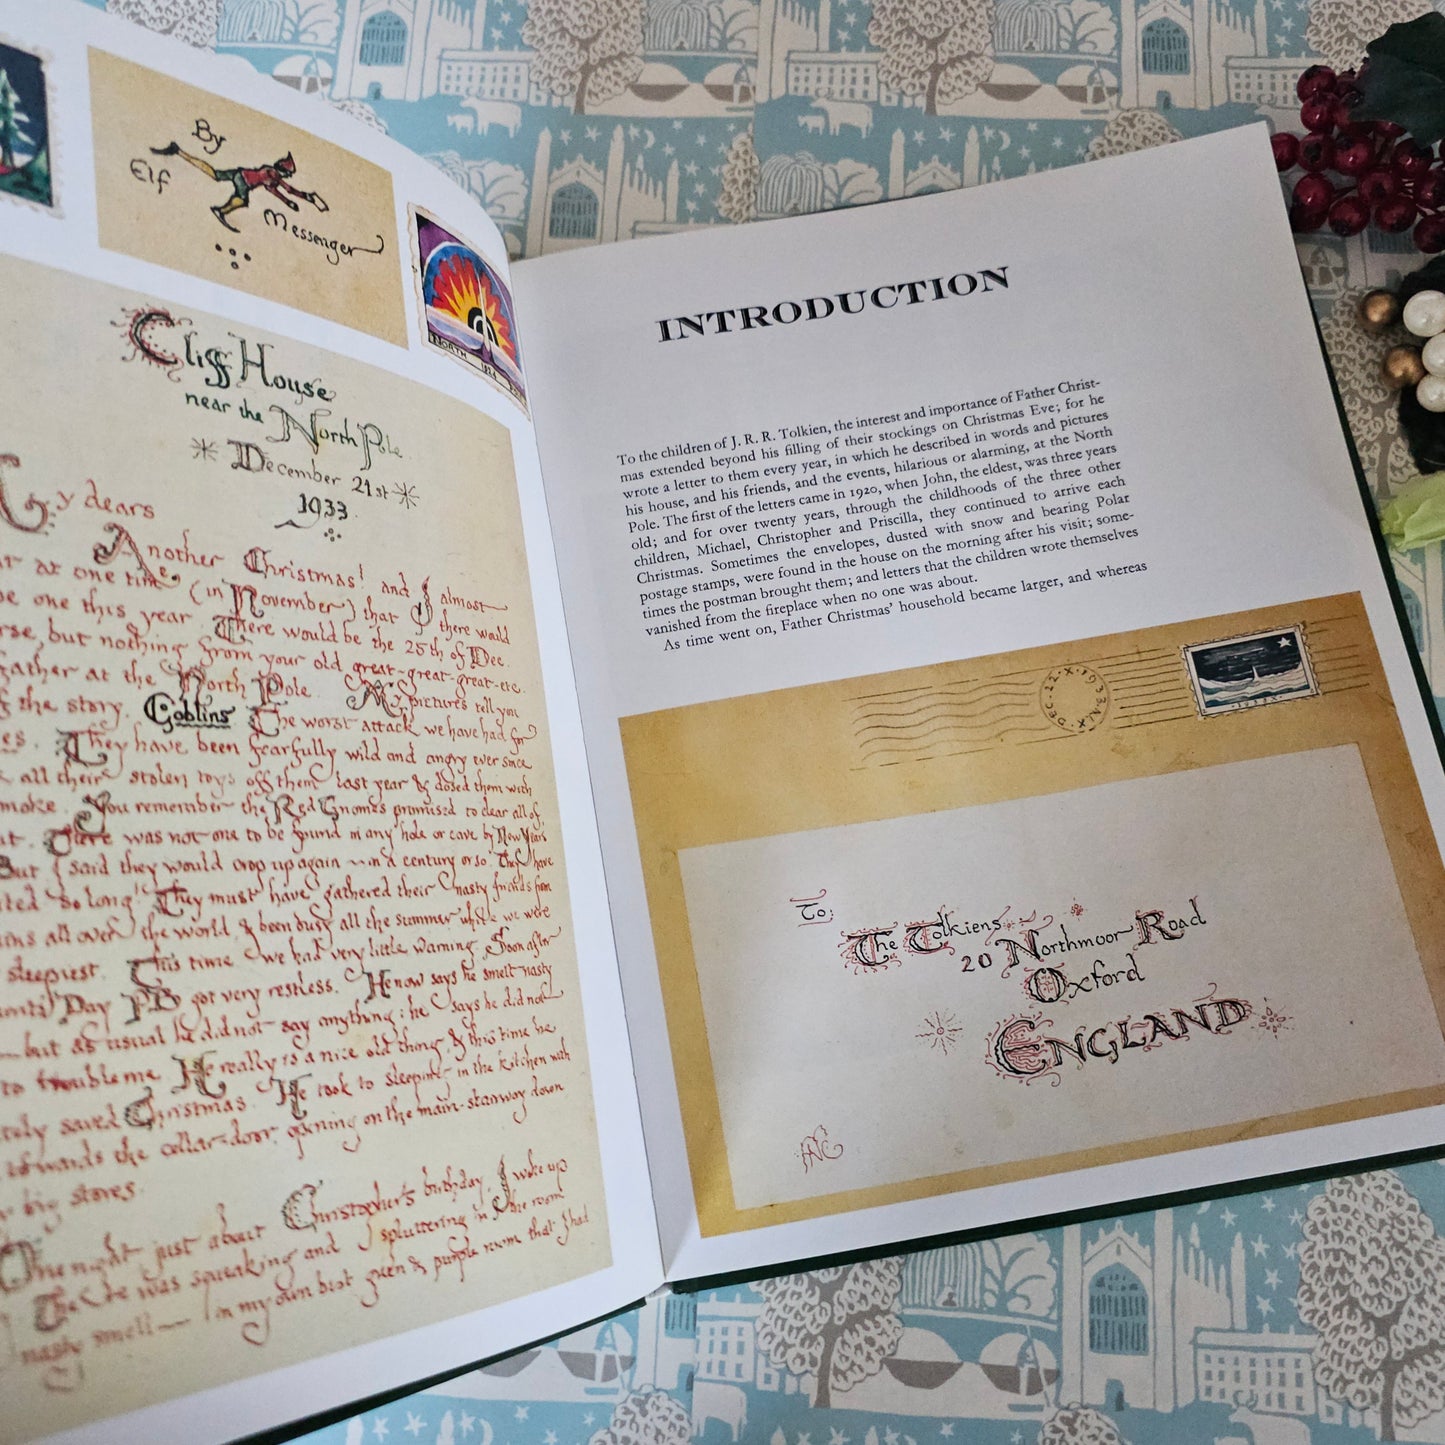 By
Elf
Messenger
NORTH
Cliff House
near the North Pole
December 21st
1933
My dears
Another Christmas! and I almost
at one time (in November) that there would
one this year. There would be the 25th of Dec.
but nothing from your old great-great-great-etc.
at the North Pole. My pictures tell you
the story. Goblins. The worst attack we have had for
They have been fearfully wild and angry ever since
all their stolen toys off them last year & dosed them with
You remember the Red Gnomes promised to clear all of
There was not one to be found in any hole or cave by New Years
But I said they would crop up again — in a century or so. They have
so long! They must have gathered their nasty friends from
all over the world, & been busy all the summer while we were
sleepiest. This time we had very little warning. Soon after
Day PB got very restless. He now says he smelt nasty
— but as usual he did not say anything: he says he did not
to trouble me. He really is a nice old thing, & this time he
saved Christmas. He took to sleeping in the kitchen with
towards the cellar-door, opening on the main-stairway down
big stores.
One night just about Christopher's birthday, I woke up
he was squeaking and spluttering in the room
nasty smell — in my own best green & purple room that I had
INTRODUCTION
To the children of J. R. R. Tolkien, the interest and importance of Father Christ-
mas extended beyond his filling of their stockings on Christmas Eve; for he
wrote a letter to them every year, in which he described in words and pictures
his house, and his friends, and the events, hilarious or alarming, at the North
Pole. The first of the letters came in 1920, when John, the eldest, was three years
old; and for over twenty years, through the childhoods of the three other
children, Michael, Christopher and Priscilla, they continued to arrive each
Christmas. Sometimes the envelopes, dusted with snow and bearing Polar
postage stamps, were found in the house on the morning after his visit; some-
times the postman brought them; and letters that the children wrote themselves
vanished from the fireplace when no one was about.
As time went on, Father Christmas' household became larger, and whereas
DEC. 22. X. 1933. NIX
To:
The Tolkiens
20 Northmoor Road
Oxford
ENGLAND